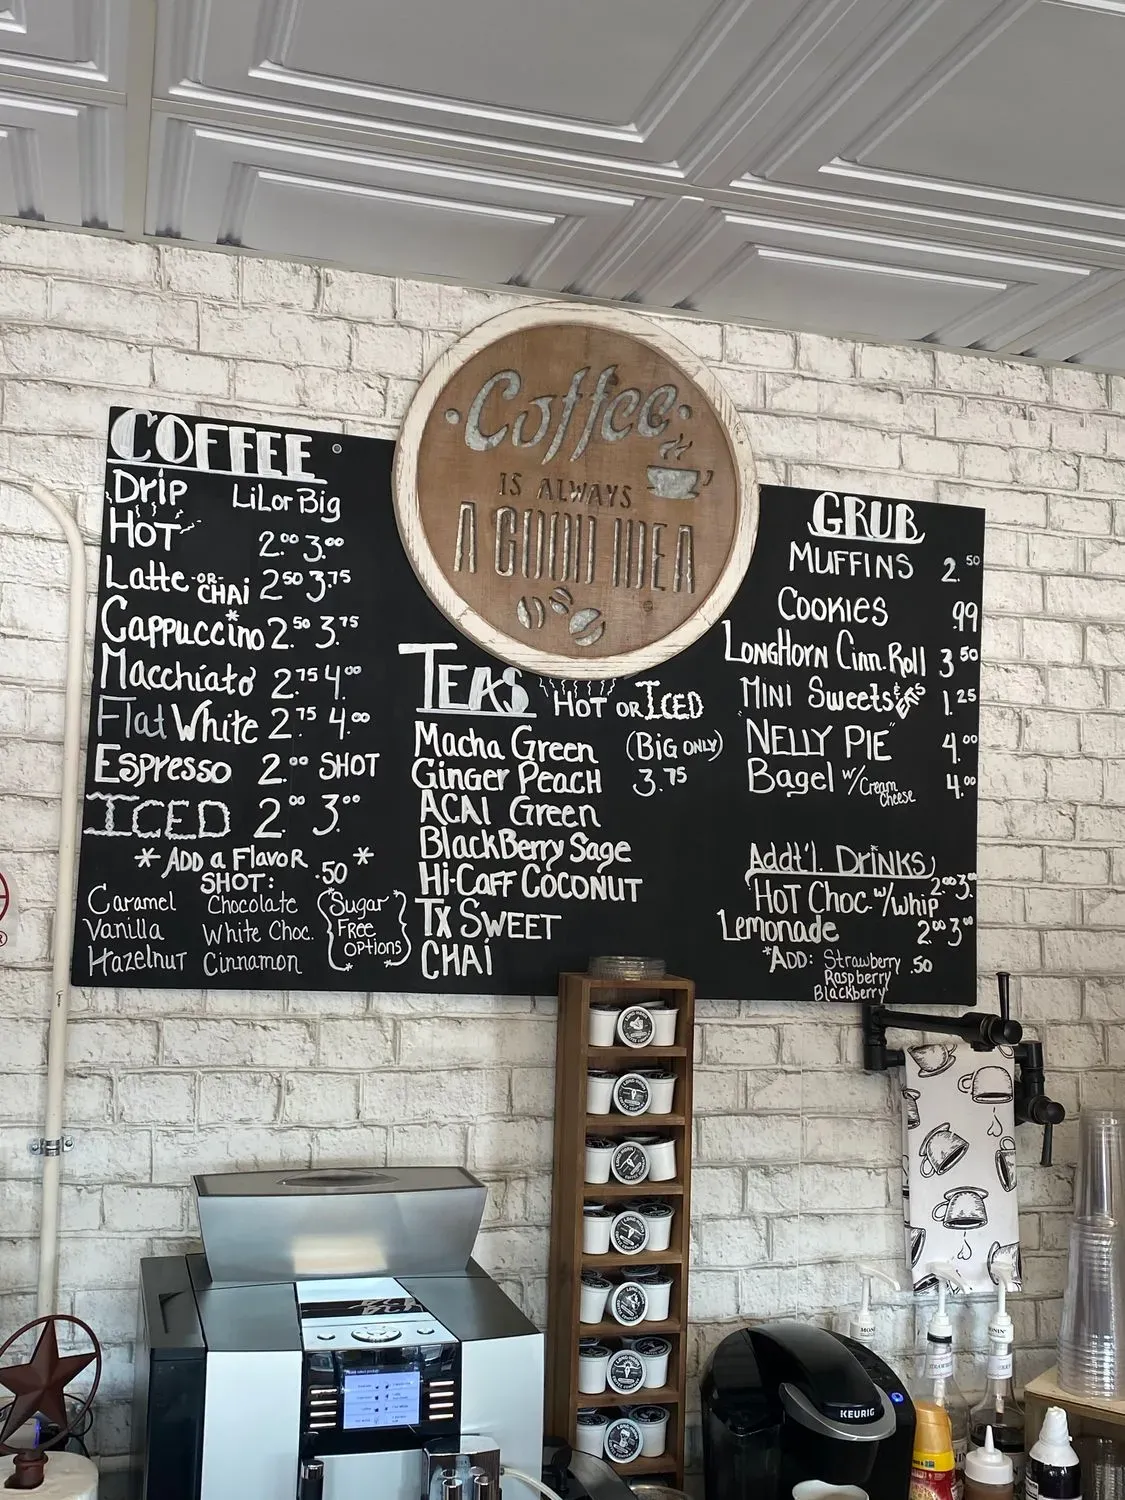 COFFEE
Drip LiL or Big
HOT 2.00 3.00
Latte -OR- CHAi 2.50 3.75
Cappuccino* 2.50 3.75
Macchiato 2.75 4.00
Flat White 2.75 4.00
Espresso 2.00 SHOT
ICED 2.00 3.00
*ADD a FlavoR SHOT: .50*
Caramel Chocolate
Vanilla White Choc.
Hazelnut Cinnamon
*Sugar*
Free
*Options*
Coffee
IS ALWAYS
A GOOD IDEA
TEAS HOT OR ICED
Macha Green (Big ONLY)
Ginger Peach 3.75
ACAI Green
BlackBerry Sage
Hi-Caff COCONUT
Tx SWEET
CHAi
GRUB
MUFFINS 2.50
COOKIES .99
LONGHORN Cinn. Roll 3.50
MINI Sweets & EATS 1.25
"NELLY PIE" 4.00
Bagel w/ Cream Cheese 4.00
Addt'l. DRINKS
HOT Choc w/whip 2.00 3.00
Lemonade 2.00 3.00
*ADD: Strawberry .50
Raspberry
Blackberry
KEURIG